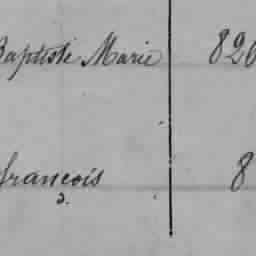 Baptiste Marie 820
françois 8
2.